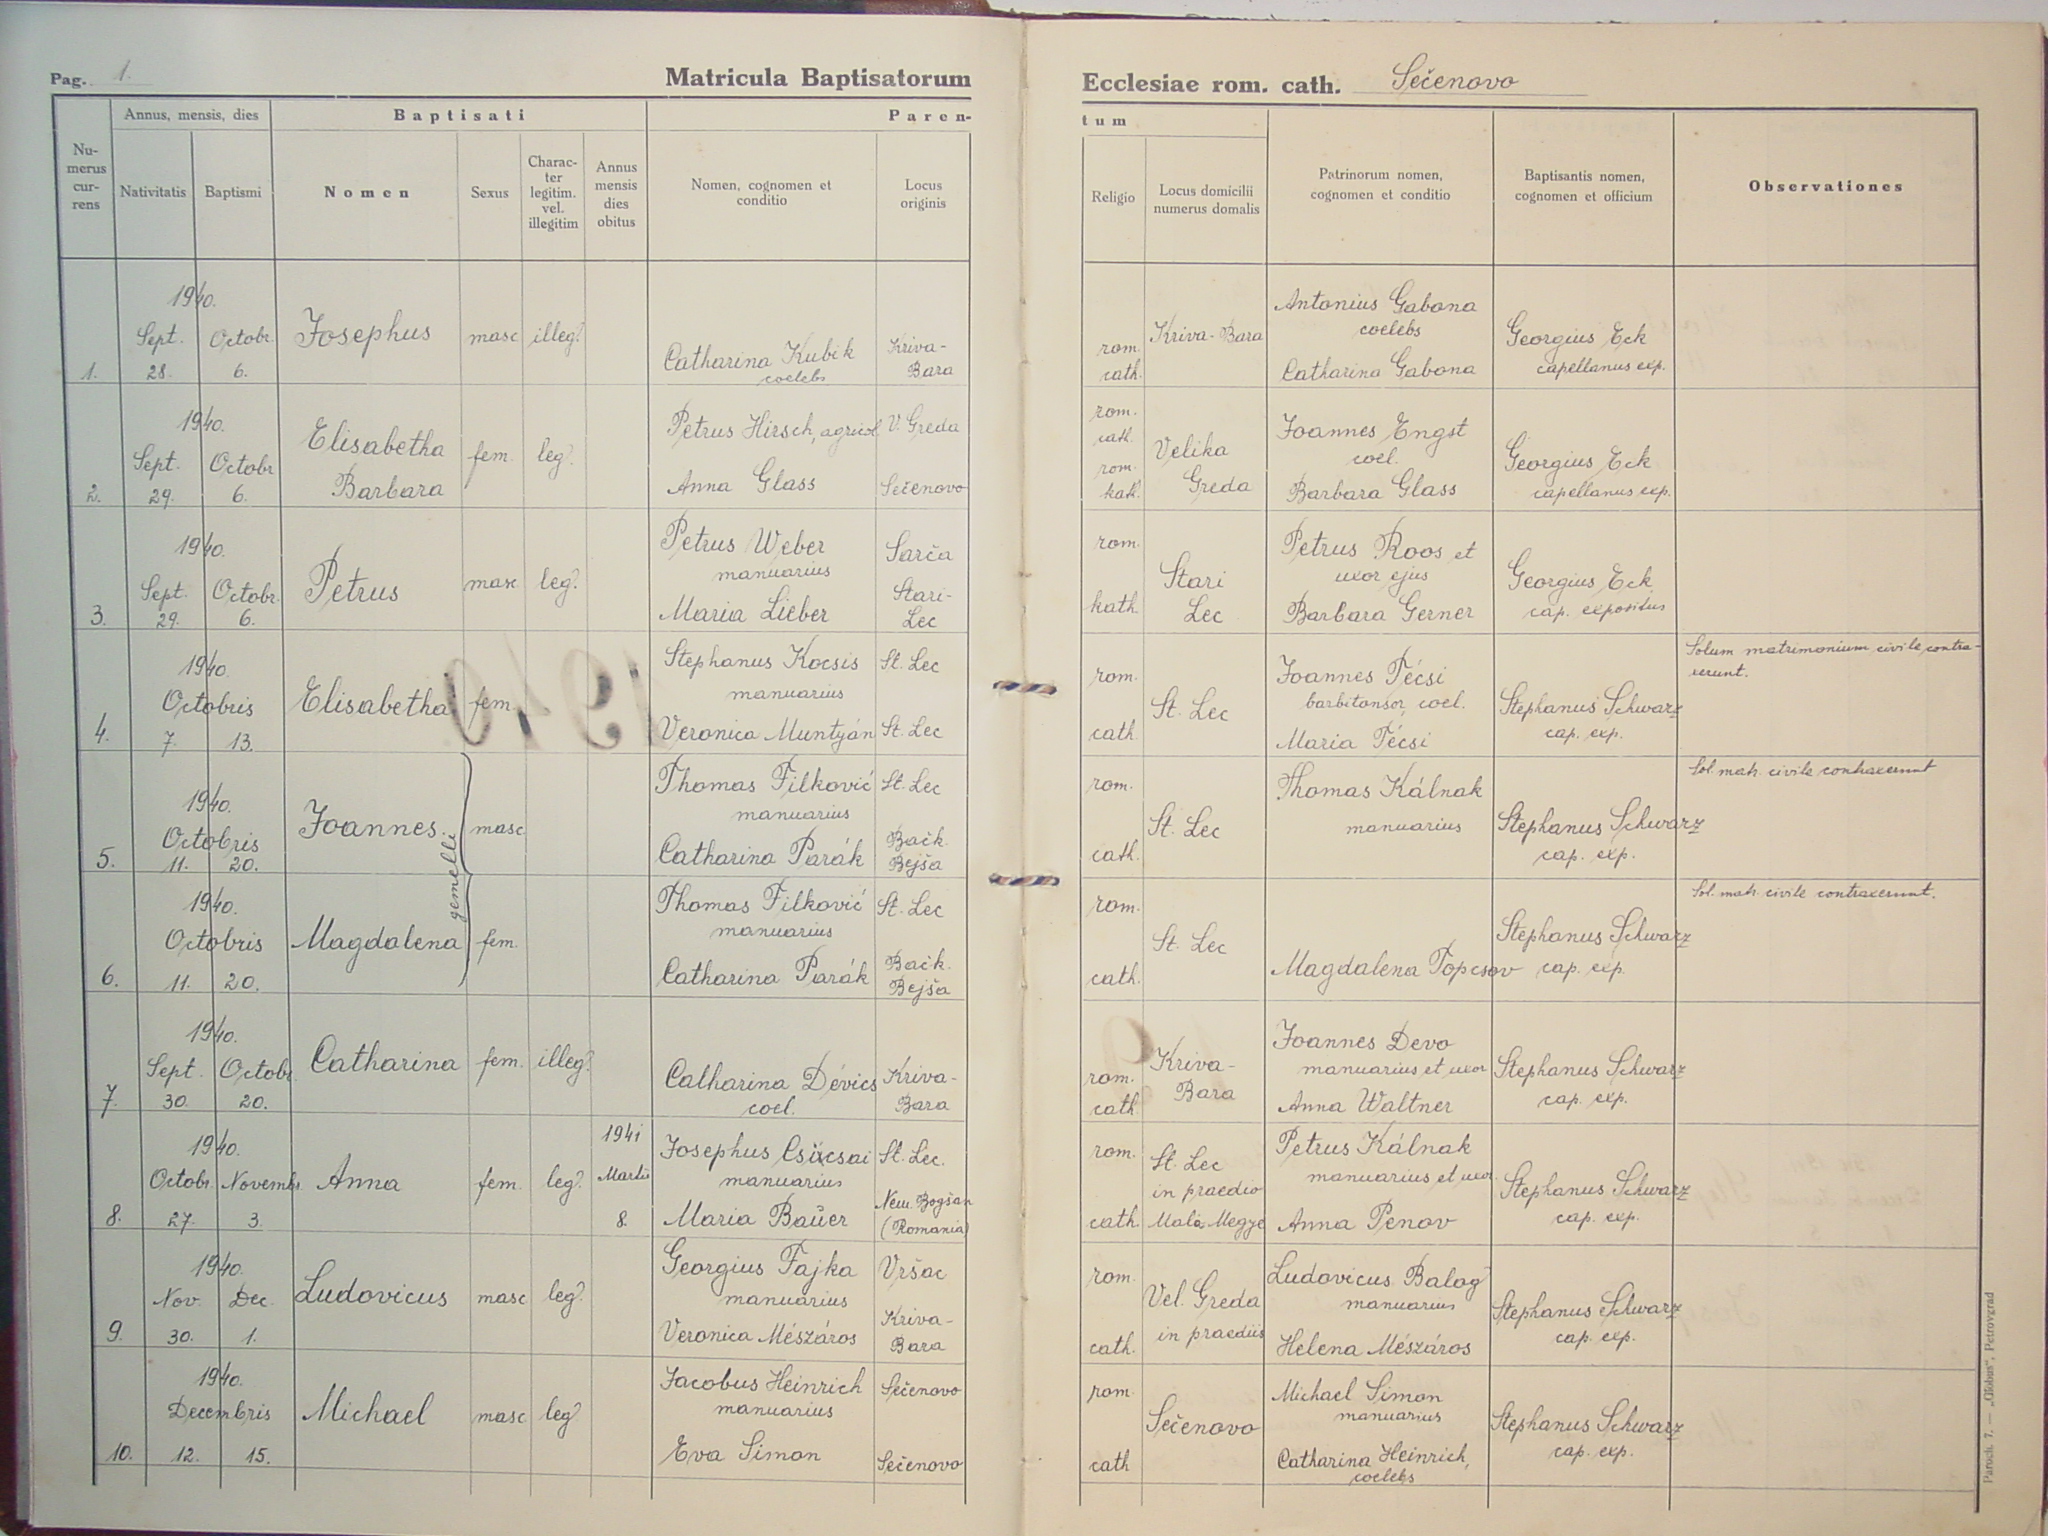 Pag. 1.
Matricula Baptisatorum
Ecclesiae rom. cath. Sečenovo
Numerus currens
Annus, mensis, dies
Nativitatis
Baptismi
Baptisati
Nomen
Sexus
Charac-
ter
legitim.
vel.
illegitim
Annus
mensis
dies
obitus
Paren-
tum
Nomen, cognomen et
conditio
Locus
originis
Religio
Locus domicilii
numerus domalis
Patrinorum nomen,
cognomen et conditio
Baptisantis nomen,
cognomen et officium
Observationes
1. 1940. Sept. 28. Octobr. 6. Josephus masc illeg.
Catharina Kubik coelebs Kriva-Bara
rom. cath. Kriva-Bara
Antonius Gabona coelebs
Catharina Gabona
Georgius Eck capellanus exp.
2. 1940. Sept. 29. Octobr 6. Elisabetha Barbara fem. leg.
Petrus Hirsch, agricol V. Greda
Anna Glass Sečenovo
rom. cath. rom. kath. Velika Greda
Joannes Engst coel.
Barbara Glass
Georgius Eck capellanus exp.
3. 1940. Sept. 29. Octobr. 6. Petrus masc leg.
Petrus Weber manuarius Sarča
Maria Lieber Stari-Lec
rom. kath. Stari Lec
Petrus Roos et uxor ejus
Barbara Gerner
Georgius Eck cap. expositus
4. 1940. Octobris 7. 13. Elisabetha fem.
Stephanus Kocsis manuarius St. Lec
Veronica Muntyán St. Lec
rom. cath. St. Lec
Joannes Técsi barbitonsor, coel.
Maria Técsi
Stephanus Schwarz cap. exp.
Solum matrimonium civile contra-
xerunt.
5. 1940. Octobris 11. 20. Joannes. masc
gemelle
Thomas Filković manuarius St. Lec
Catharina Parák Bačk. Bejša
rom. cath. St. Lec
Thomas Kálnak manuarius
Stephanus Schwarz cap. exp.
Sol. matr. civile contraxerunt
6. 1940. Octobris 11. 20. Magdalena fem.
Thomas Filković manuarius St. Lec
Catharina Parák Bačk. Bejša
rom. cath. St. Lec
Magdalena Topcsov
Stephanus Schwarz cap. exp.
Sol. matr. civile contraxerunt.
7. 1940. Sept. 30. Octobr. 20. Catharina fem. illeg.
Catharina Dévics coel. Kriva-Bara
rom. cath. Kriva-Bara
Joannes Devo manuarius et uxor
Anna Waltner
Stephanus Schwarz cap. exp.
8. 1940. Octobr. 27. Novembr. 3. Anna fem. leg. 1941 Martii 8.
Josephus Csücsai manuarius St. Lec.
Maria Baŭer Nem. Bogšan (Romania)
rom. cath. St. Lec in praedio Mala Megye
Petrus Kálnak manuarius et uxor
Anna Penov
Stephanus Schwarz cap. exp.
9. 1940. Nov. 30. Dec. 1. Ludovicus masc leg.
Georgius Fajka manuarius Vršac
Veronica Mészáros Kriva-Bara
rom. cath. Vel. Greda in praediis
Ludovicus Balog manuarius
Helena Mészáros
Stephanus Schwarz cap. exp.
10. 1940. Decembris 12. 15. Michael masc leg.
Jacobus Heinrich manuarius Sečenovo
Eva Simon Sečenovo
rom. cath Sečenovo
Michael Simon manuarius
Catharina Heinrich, coelebs
Stephanus Schwarz cap. exp.
Paroch. 7. — „Globus“, Petrovgrad